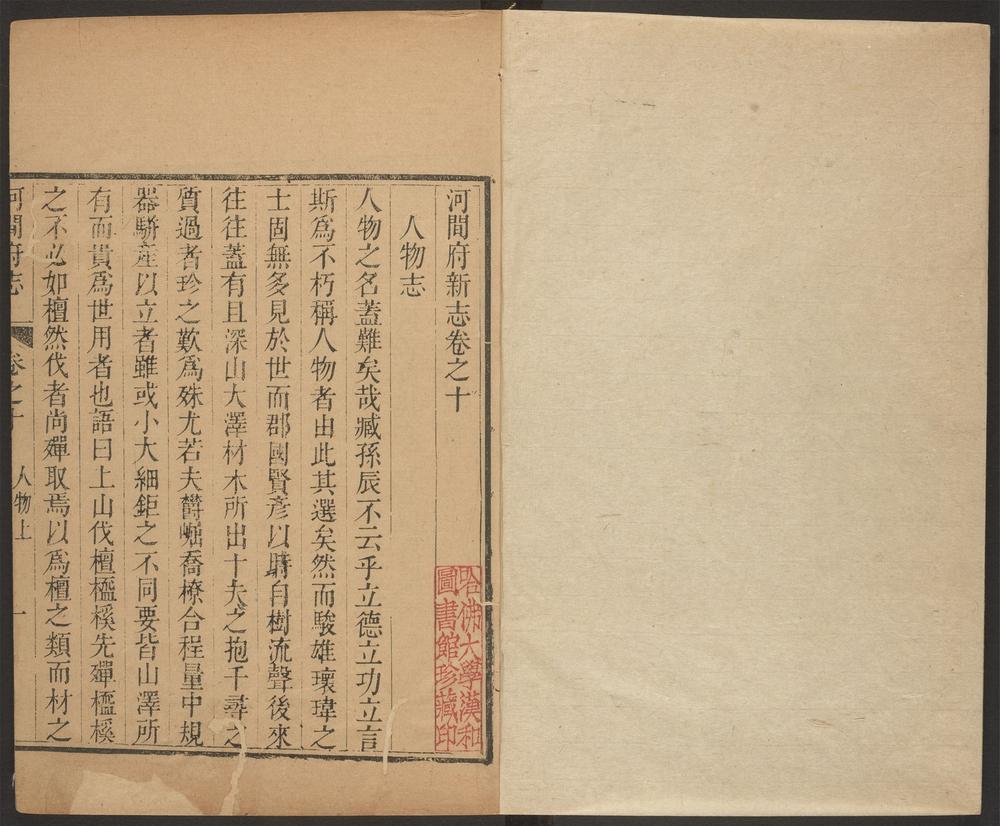 河間府新志卷之十
人物志
人物之名蓋難矣哉臧孫辰不云乎立德立功立言
斯爲不朽稱人物者由此其選矣然而駿雄瓌瑋之
士固無多見於世而郡國賢彥以時自樹流聲後來
往往蓋有且深山大澤材木所出十夫之抱千尋之
質過者珍之歎爲殊尤若夫欝崛喬橑合程量中規
器駢產以立者雖或小大細鉅之不同要皆山澤所
有而貴爲世用者也語曰上山伐檀榼橀先殫榼橀
之不必如檀然伐者尚殫取焉以爲檀之類而材之
河間府志
卷之十
人物上
一
哈佛大學漢和
圖書館珍藏印